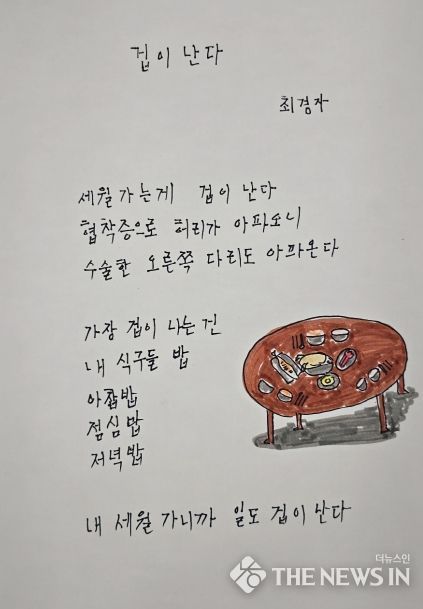 겁이 난다
최경자
세월 가는게 겁이 난다
협착증으로 허리가 아파오니
수술한 오른쪽 다리도 아파온다
가장 겁이 나는건
내 식구들 밥
아침밥
점심밥
저녁밥
내 세월 가니까 일도 겁이 난다
더뉴스인
THE NEWS IN